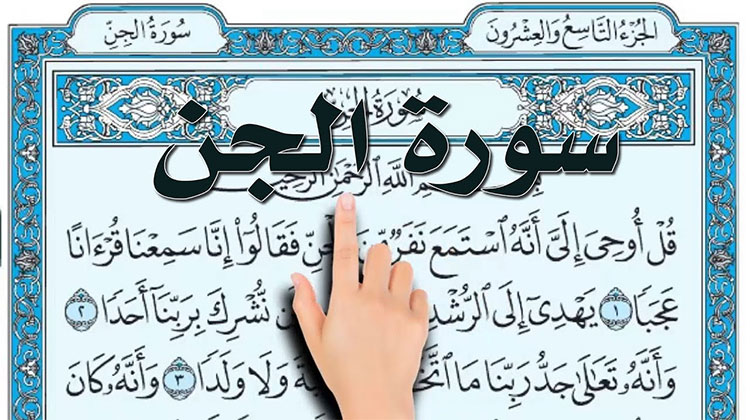 الجُزْءُ التَّاسِعُ وَالعِشْرُونَ
سُورَةُ الجِنِّ
سورة الجن
ٱللَّهِ ٱلرَّحْمَٰنِ
قُلْ أُوحِىَ إِلَىَّ أَنَّهُ ٱسْتَمَعَ نَفَرٌ فَقَالُوٓا۟ إِنَّا سَمِعْنَا قُرْءَانًا
عَجَبًا ١ يَهْدِىٓ إِلَى ٱلرُّشْدِ نُّشْرِكَ بِرَبِّنَآ أَحَدًا ٢
وَأَنَّهُ تَعَٰلَىٰ جَدُّ رَبِّنَا مَا وَلَا وَلَدًا ٣ وَأَنَّهُ كَانَ